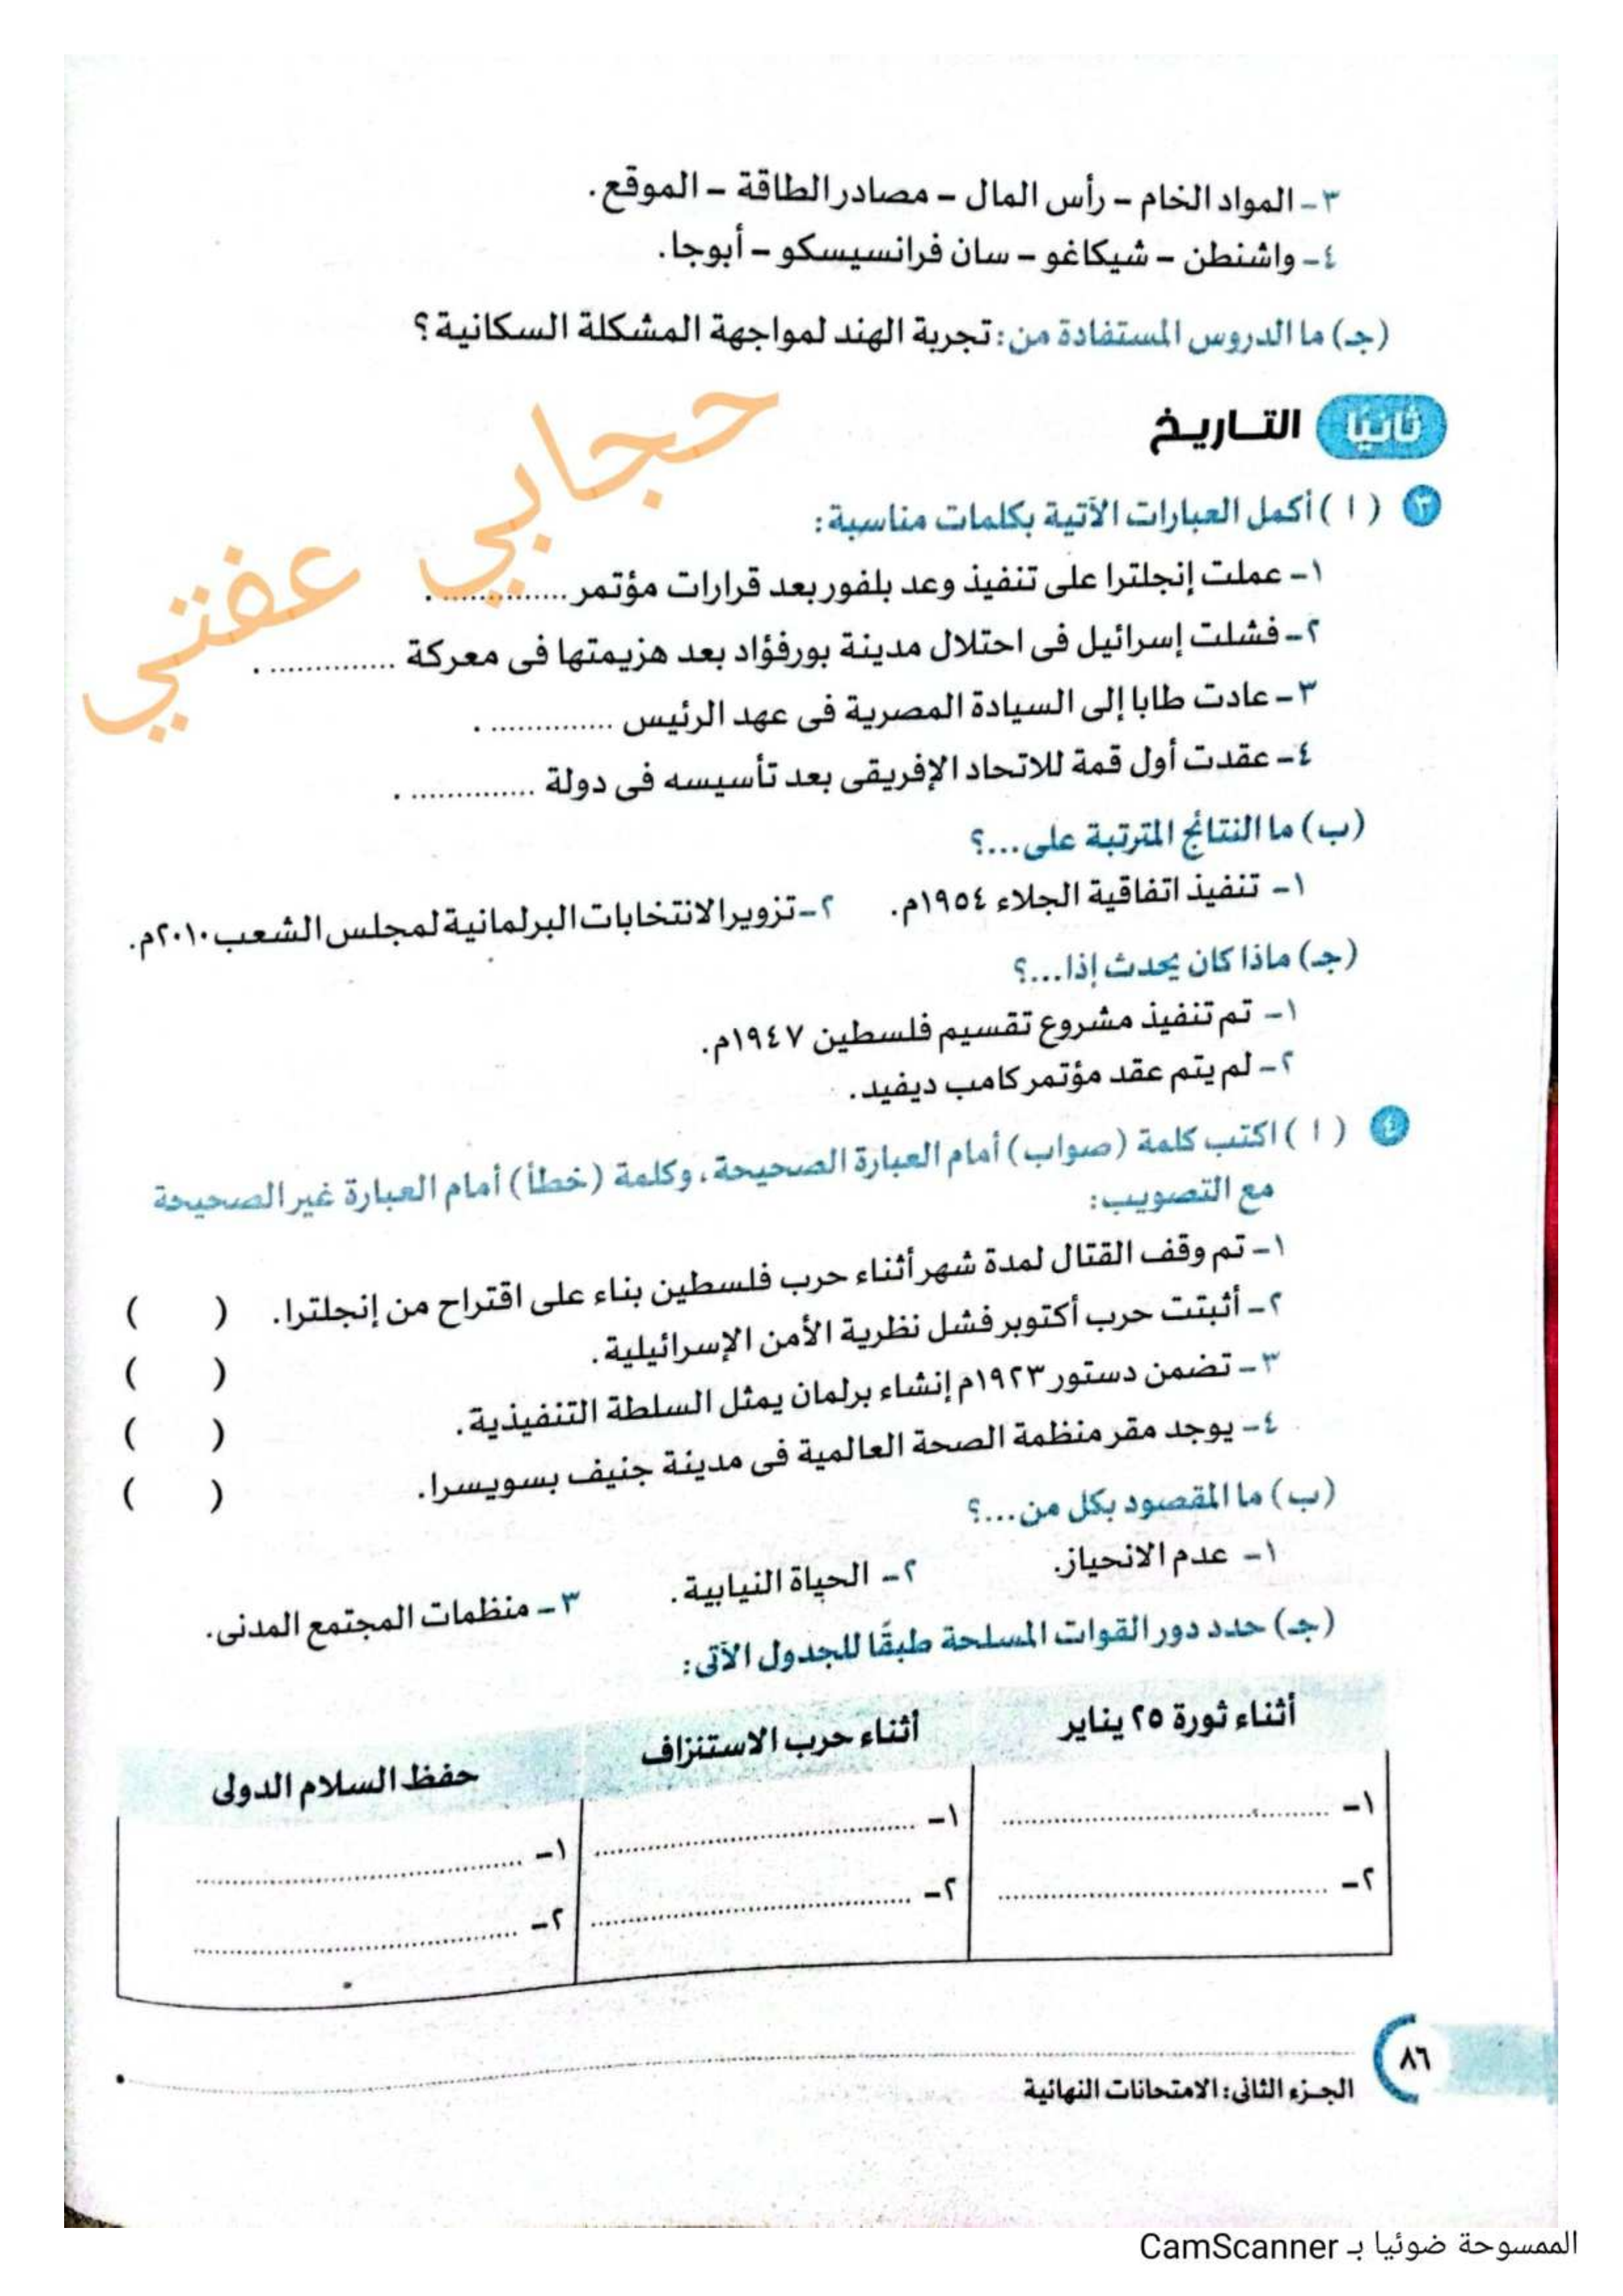 ٣- المواد الخام - رأس المال - مصادر الطاقة - الموقع.
٤- واشنطن - شيكاغو - سان فرانسيسكو - أبوجا.
(جـ) ما الدروس المستفادة من: تجربة الهند لمواجهة المشكلة السكانية؟
ثانيًا التاريخ
حجابي عفتي
٣ (ا) أكمل العبارات الآتية بكلمات مناسبة:
١- عملت إنجلترا على تنفيذ وعد بلفور بعد قرارات مؤتمر .............. .
٢- فشلت إسرائيل فى احتلال مدينة بورفؤاد بعد هزيمتها فى معركة .............. .
٣- عادت طابا إلى السيادة المصرية فى عهد الرئيس .............. .
٤- عقدت أول قمة للاتحاد الإفريقى بعد تأسيسه فى دولة .............. .
(ب) ما النتائج المترتبة على...؟
١- تنفيذ اتفاقية الجلاء ١٩٥٤م. ٢- تزوير الانتخابات البرلمانية لمجلس الشعب ٢٠١٠م.
(جـ) ماذا كان يحدث إذا...؟
١- تم تنفيذ مشروع تقسيم فلسطين ١٩٤٧م.
٢- لم يتم عقد مؤتمر كامب ديفيد.
٤ (ا) اكتب كلمة (صواب) أمام العبارة الصحيحة، وكلمة (خطأ) أمام العبارة غير الصحيحة
مع التصويب:
١- تم وقف القتال لمدة شهر أثناء حرب فلسطين بناء على اقتراح من إنجلترا. ( )
٢- أثبتت حرب أكتوبر فشل نظرية الأمن الإسرائيلية. ( )
٣- تضمن دستور ١٩٢٣م إنشاء برلمان يمثل السلطة التنفيذية. ( )
٤- يوجد مقر منظمة الصحة العالمية فى مدينة جنيف بسويسرا. ( )
(ب) ما المقصود بكل من...؟
١- عدم الانحياز. ٢- الحياة النيابية. ٣- منظمات المجتمع المدنى.
(جـ) حدد دور القوات المسلحة طبقًا للجدول الآتى:
أثناء ثورة ٢٥ يناير أثناء حرب الاستنزاف حفظ السلام الدولى
١- .............. ١- .............. ١- ..............
٢- .............. ٢- .............. ٢- ..............
٨٦
الجزء الثانى: الامتحانات النهائية
الممسوحة ضوئيا بـ CamScanner